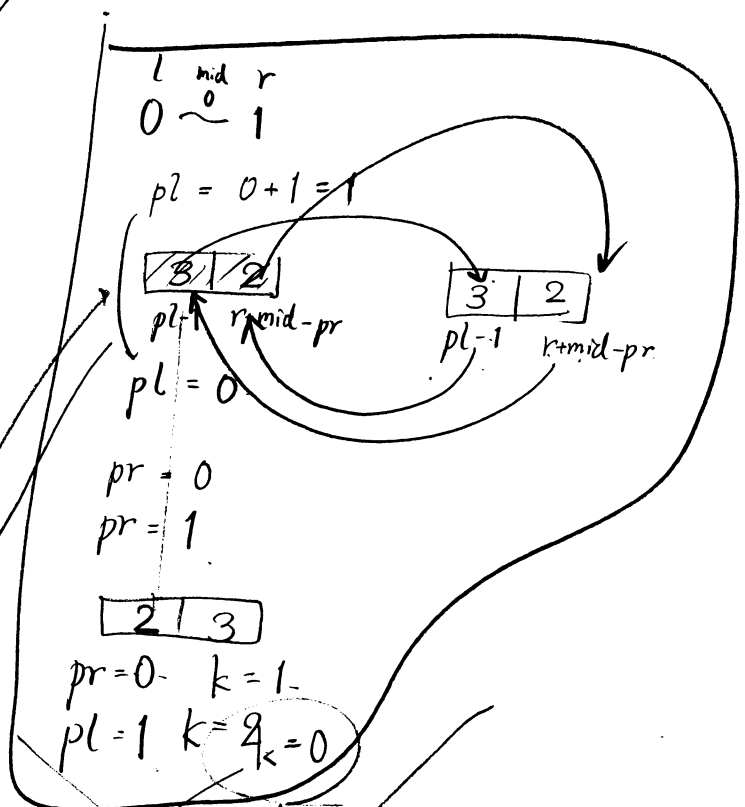 l mid r
0
0 ~ 1
pl = 0+1 = 1
3 2
3 2
pl-1 r+mid-pr
pl-1 r+mid-pr
pl = 0
pr = 0
pr = 1
2 3
pr=0 k=1
pl=1 k=
k=0